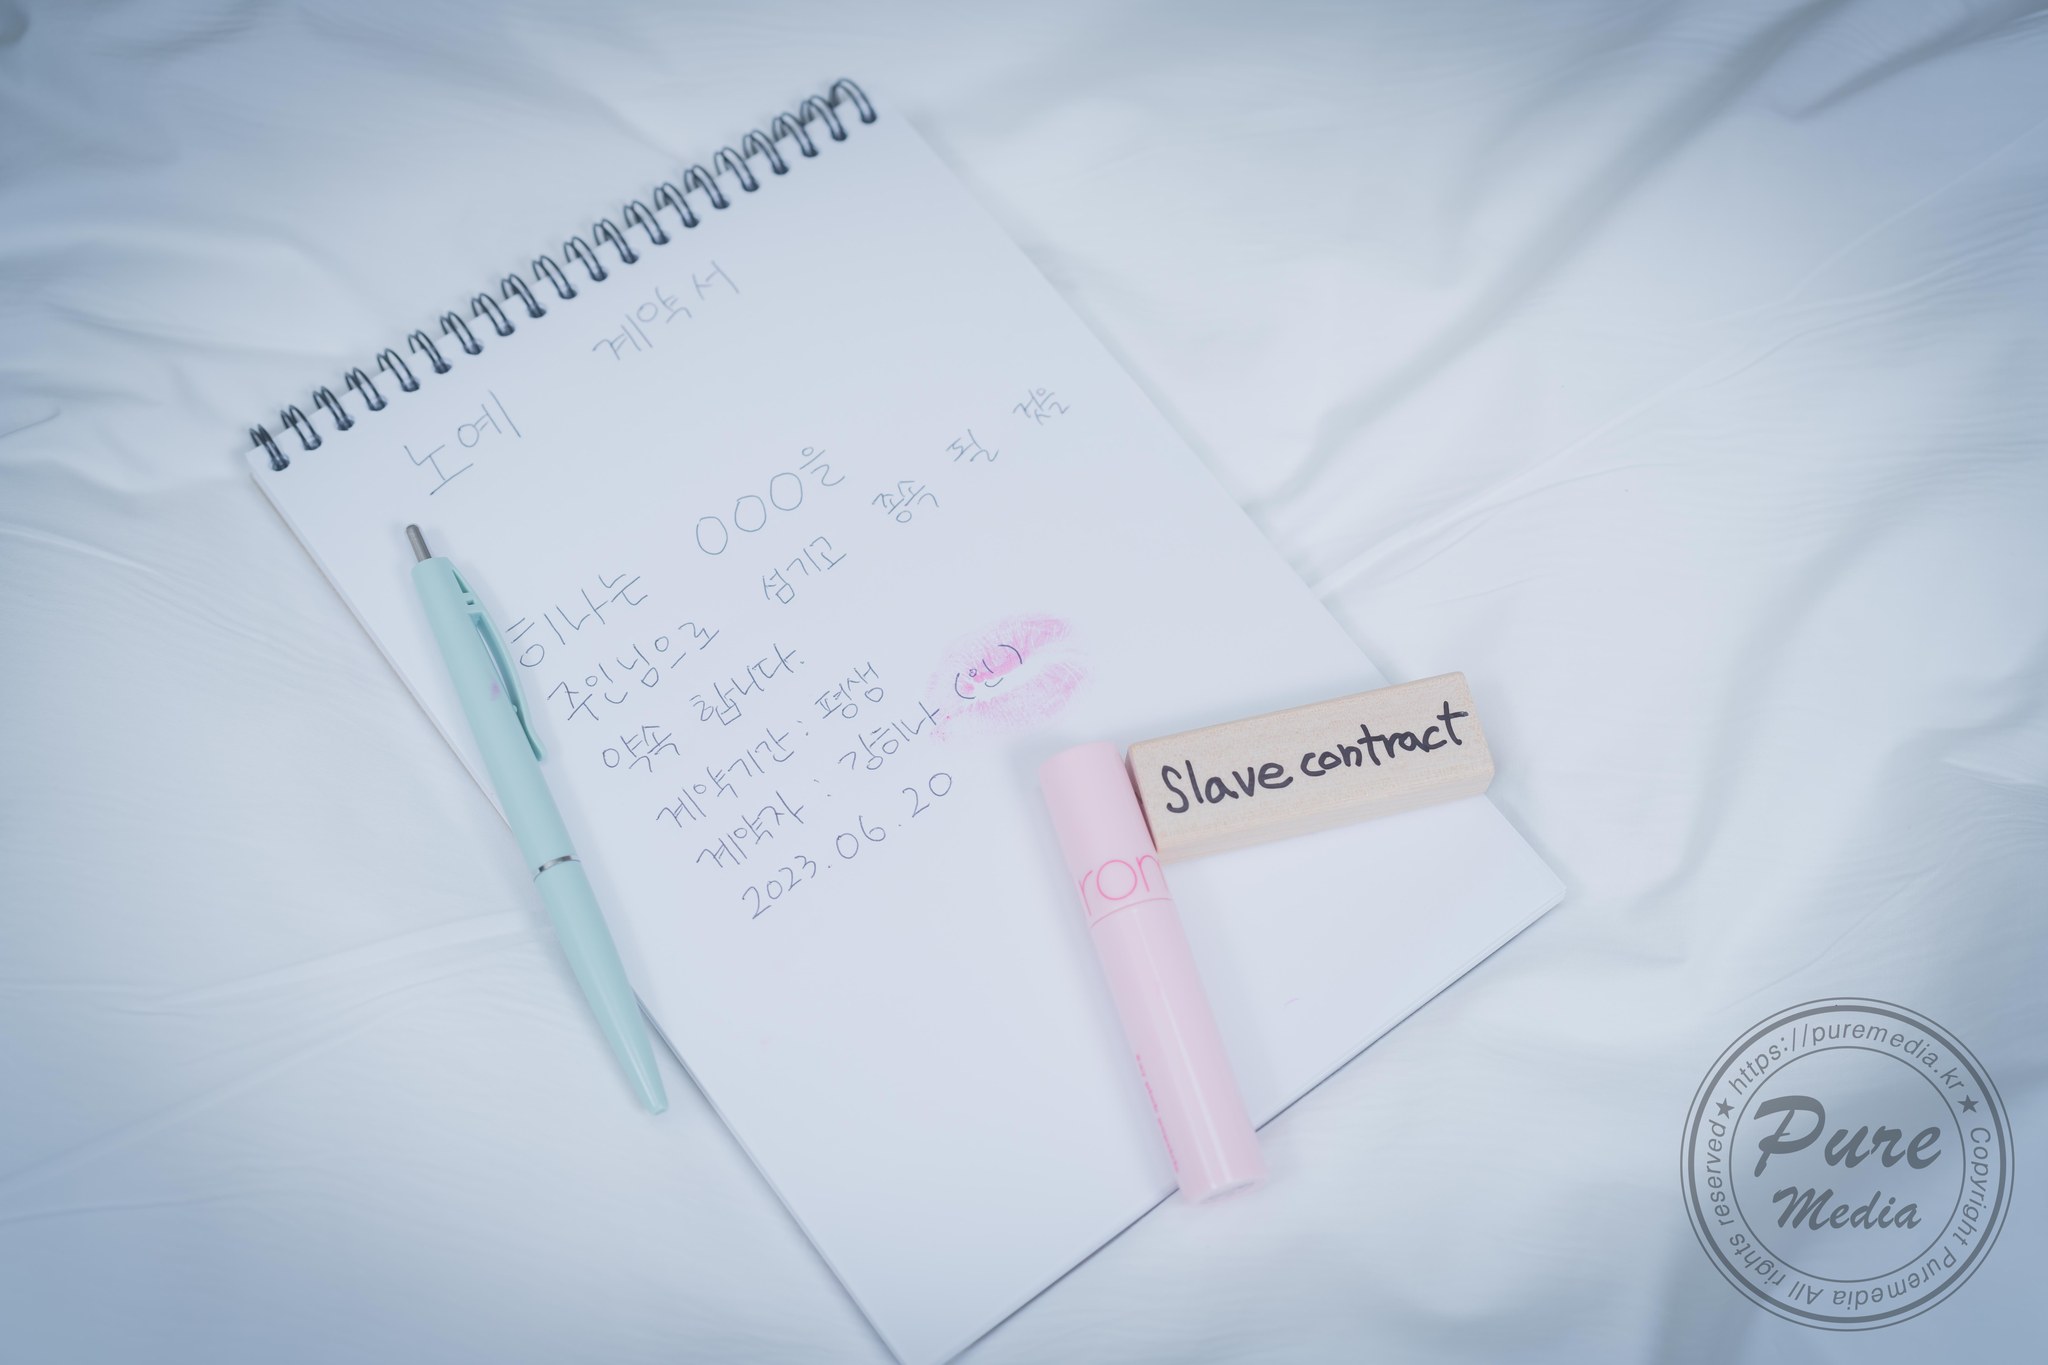 노예 계약서
희나는 OOO을
주인님으로 섬기고 종속 될 것을
약속 합니다.
계약기간 : 평생
계약자 : 김희나 (인)
2023.06.20
Slave contract
rom
Pure
Media
https://puremedia.kr ★ Copyright Puremedia All rights reserved ★